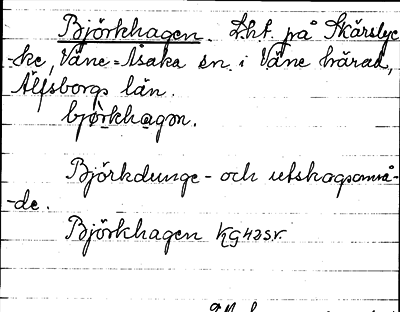 Björkhagen. Lht. på Skärslyc
-ke, Väne-Åsaka sn. i Väne härad,
Älfsborgs län.
bjørkhagən.
Björkdunge- och utskogsområ-
-de.
Björkhagen KG42sv.